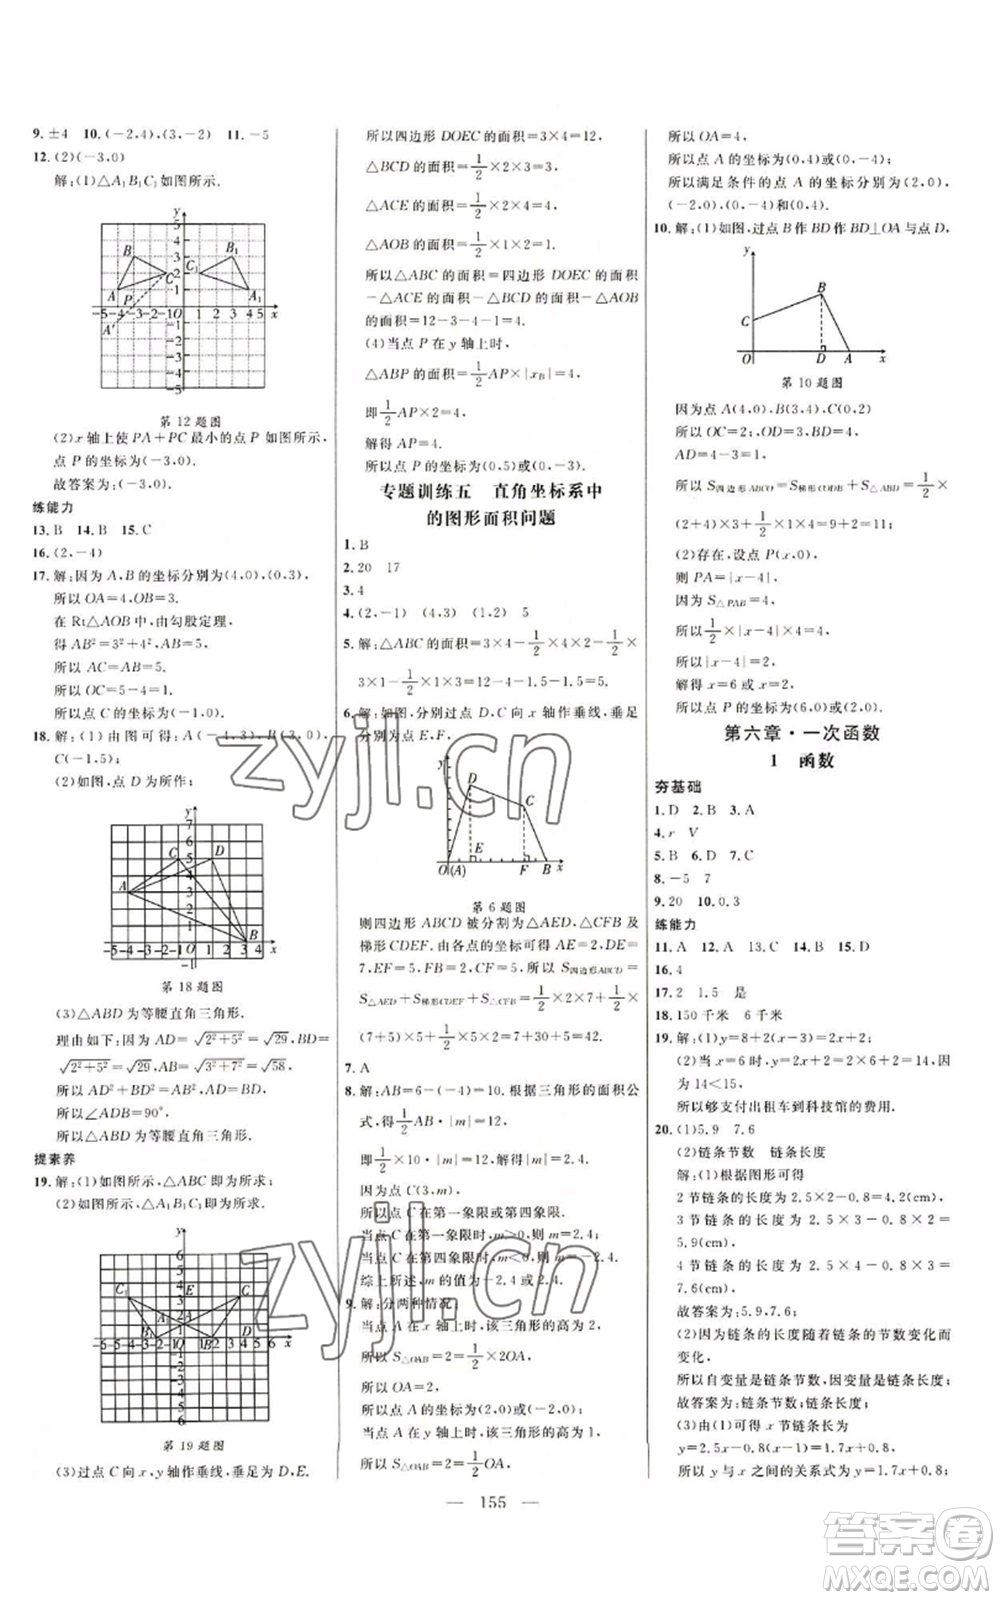 9. ±4　10. (-2,4),(3,-2)　11. -5
12. (2)(-3,0)
解:(1)△A₁B₁C₁如图所示.
第12题图
(2)x轴上使PA+PC最小的点P如图所示,
点P的坐标为(-3,0).
故答案为:(-3,0).
练能力
13. B　14. B　15. C
16. (2,-4)
17. 解:因为A,B的坐标分别为(4,0),(0,3).
所以OA=4,OB=3.
在Rt△AOB中,由勾股定理,
得AB²=3²+4²,AB=5.
所以AC=AB=5.
所以OC=5-4=1.
所以点C的坐标为(-1,0).
18. 解:(1)由图可得:A(-4,3),B(3,0),
C(-1,5).
(2)如图,点D为所作;
第18题图
(3)△ABD为等腰直角三角形.
理由如下:因为AD=√(2²+5²)=√29,BD=
√(2²+5²)=√29,AB=√(3²+7²)=√58,
所以AD²+BD²=AB².
所以∠ADB=90°.
所以△ABD为等腰直角三角形.
提素养
19. 解:(1)如图所示,△ABC即为所求;
(2)如图所示,△A₁B₁C₁即为所求.
第19题图
(3)过点C向x,y轴作垂线,垂足为D,E.
所以四边形DOEC的面积=3×4=12,
△BCD的面积=1/2×2×3=3,
△ACE的面积=1/2×2×4=4,
△AOB的面积=1/2×2×1=1.
所以△ABC的面积=四边形DOEC的面积
-△ACE的面积-△BCD的面积-△AOB
的面积=12-3-4-1=4.
(4)当点P在y轴上时,
△ABP的面积=1/2AP×|x_B|=4.
即1/2AP×2=4.
解得AP=4.
所以点P的坐标为(0,5)或(0,-3).
专题训练五　直角坐标系中
的图形面积问题
1. B
2. 20　17
3. 4
4. (2,-1)　(4,3)　(1,2)　5
5. 解:△ABC的面积=3×4-1/2×4×2-1/2×
3×1-1/2×1×3=12-4-1.5-1.5=5.
6. 解:如图,分别过点D,C向x轴作垂线,垂足
分别为点E,F.
第6题图
则四边形ABCD被分割为△AED,△CFB及
梯形CDEF.由各点的坐标可得AE=2,DE=
7,EF=5,FB=2,CF=5.所以S四边形ABCD=
S△AED+S梯形CDEF+S△CFB=1/2×2×7+1/2×
(7+5)×5+1/2×2×5=7+30+5=42.
7. A
8. 解:AB=6-(-4)=10.根据三角形的面积公
式,得1/2AB·|m|=12,
即1/2×10·|m|=12,解得|m|=2.4.
因为点C(3,m).
所以点C在第一象限或第四象限.
当点C在第一象限时,m>0,则m=2.4.
当点C在第四象限时,m<0,则m=-2.4.
综上所述,m的值为-2.4或2.4.
9. 解:分两种情况:
当点A在x轴上时,该三角形的高为2,
所以S△OAB=1/2×2OA=2.
所以OA=2,
所以点A的坐标为(2,0)或(-2,0).
当点A在y轴上时,该三角形的高为1,
所以S△OAB=1/2OA=2.
所以OA=4,
所以点A的坐标为(0,4)或(0,-4).
所以满足条件的点A的坐标分别为(2,0),
(-2,0),(0,-4)和(0,4).
10. 解:(1)如图,过点B作BD作BD⊥OA与点D,
第10题图
因为点A(4,0),B(3,4),C(0,2),
所以OC=2;OD=3,BD=4;
AD=4-3=1.
所以S四边形ABCO=S梯形CODB+S△ABD=1/2×
(2+4)×3+1/2×1×4=9+2=11;
(2)存在,设点P(x,0),
则PA=|x-4|;
因为S△PAB=4
所以1/2×|x-4|×4=4.
所以|x-4|=2.
解得x=6或x=2.
所以点P的坐标为(6,0)或(2,0).
第六章·一次函数
1　函数
夯基础
1. D　2. B　3. A
4. r　V
5. B　6. D　7. C
8. -5　7
9. 20　10. 0.3
练能力
11. A　12. A　13. C　14. B　15. D
16. 4
17. 2　1.5　是
18. 150千米　6千米
19. 解:(1)y=8+2(x-3)=2x+2;
(2)当x=6时,y=2x+2=2×6+2=14;
因为14<15.
所以够支付出租车到科技馆的费用.
20. (1)5.9　7.6
(2)链条节数　链条长度
解:(1)根据图形可得
2节链条的长度为2.5×2-0.8=4.2(cm),
3节链条的长度为2.5×3-0.8×2=
5.9(cm).
4节链条的长度为2.5×4-0.8×3=
7.6(cm).
故答案为:5.9,7.6;
(2)因为链条的长度随着链条的节数变化而
变化.
所以自变量是链条节数,因变量是链条长度.
故答案为:链条节数;链条长度;
(3)由(1)可得x节链条长为
y=2.5x-0.8(x-1)=1.7x+0.8;
所以y与x之间的关系式为y=1.7x+0.8;
— 155 —
zyjl.cn
zyjl.cn
答案卷
MXQE.COM